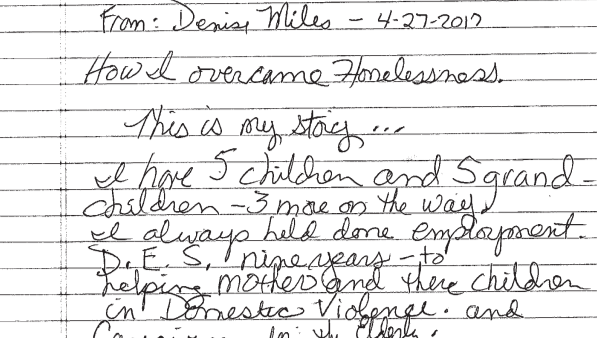 From: Denise Miles - 4-27-2017
How I overcame Homelessness.
This is my story ...
I have 5 children and 5 grand-
children - 3 more on the way.
I always held done employment.
D.E.S. nine years - to
helping mothers and there children
in Domestic Violence. and
in the Elderly.